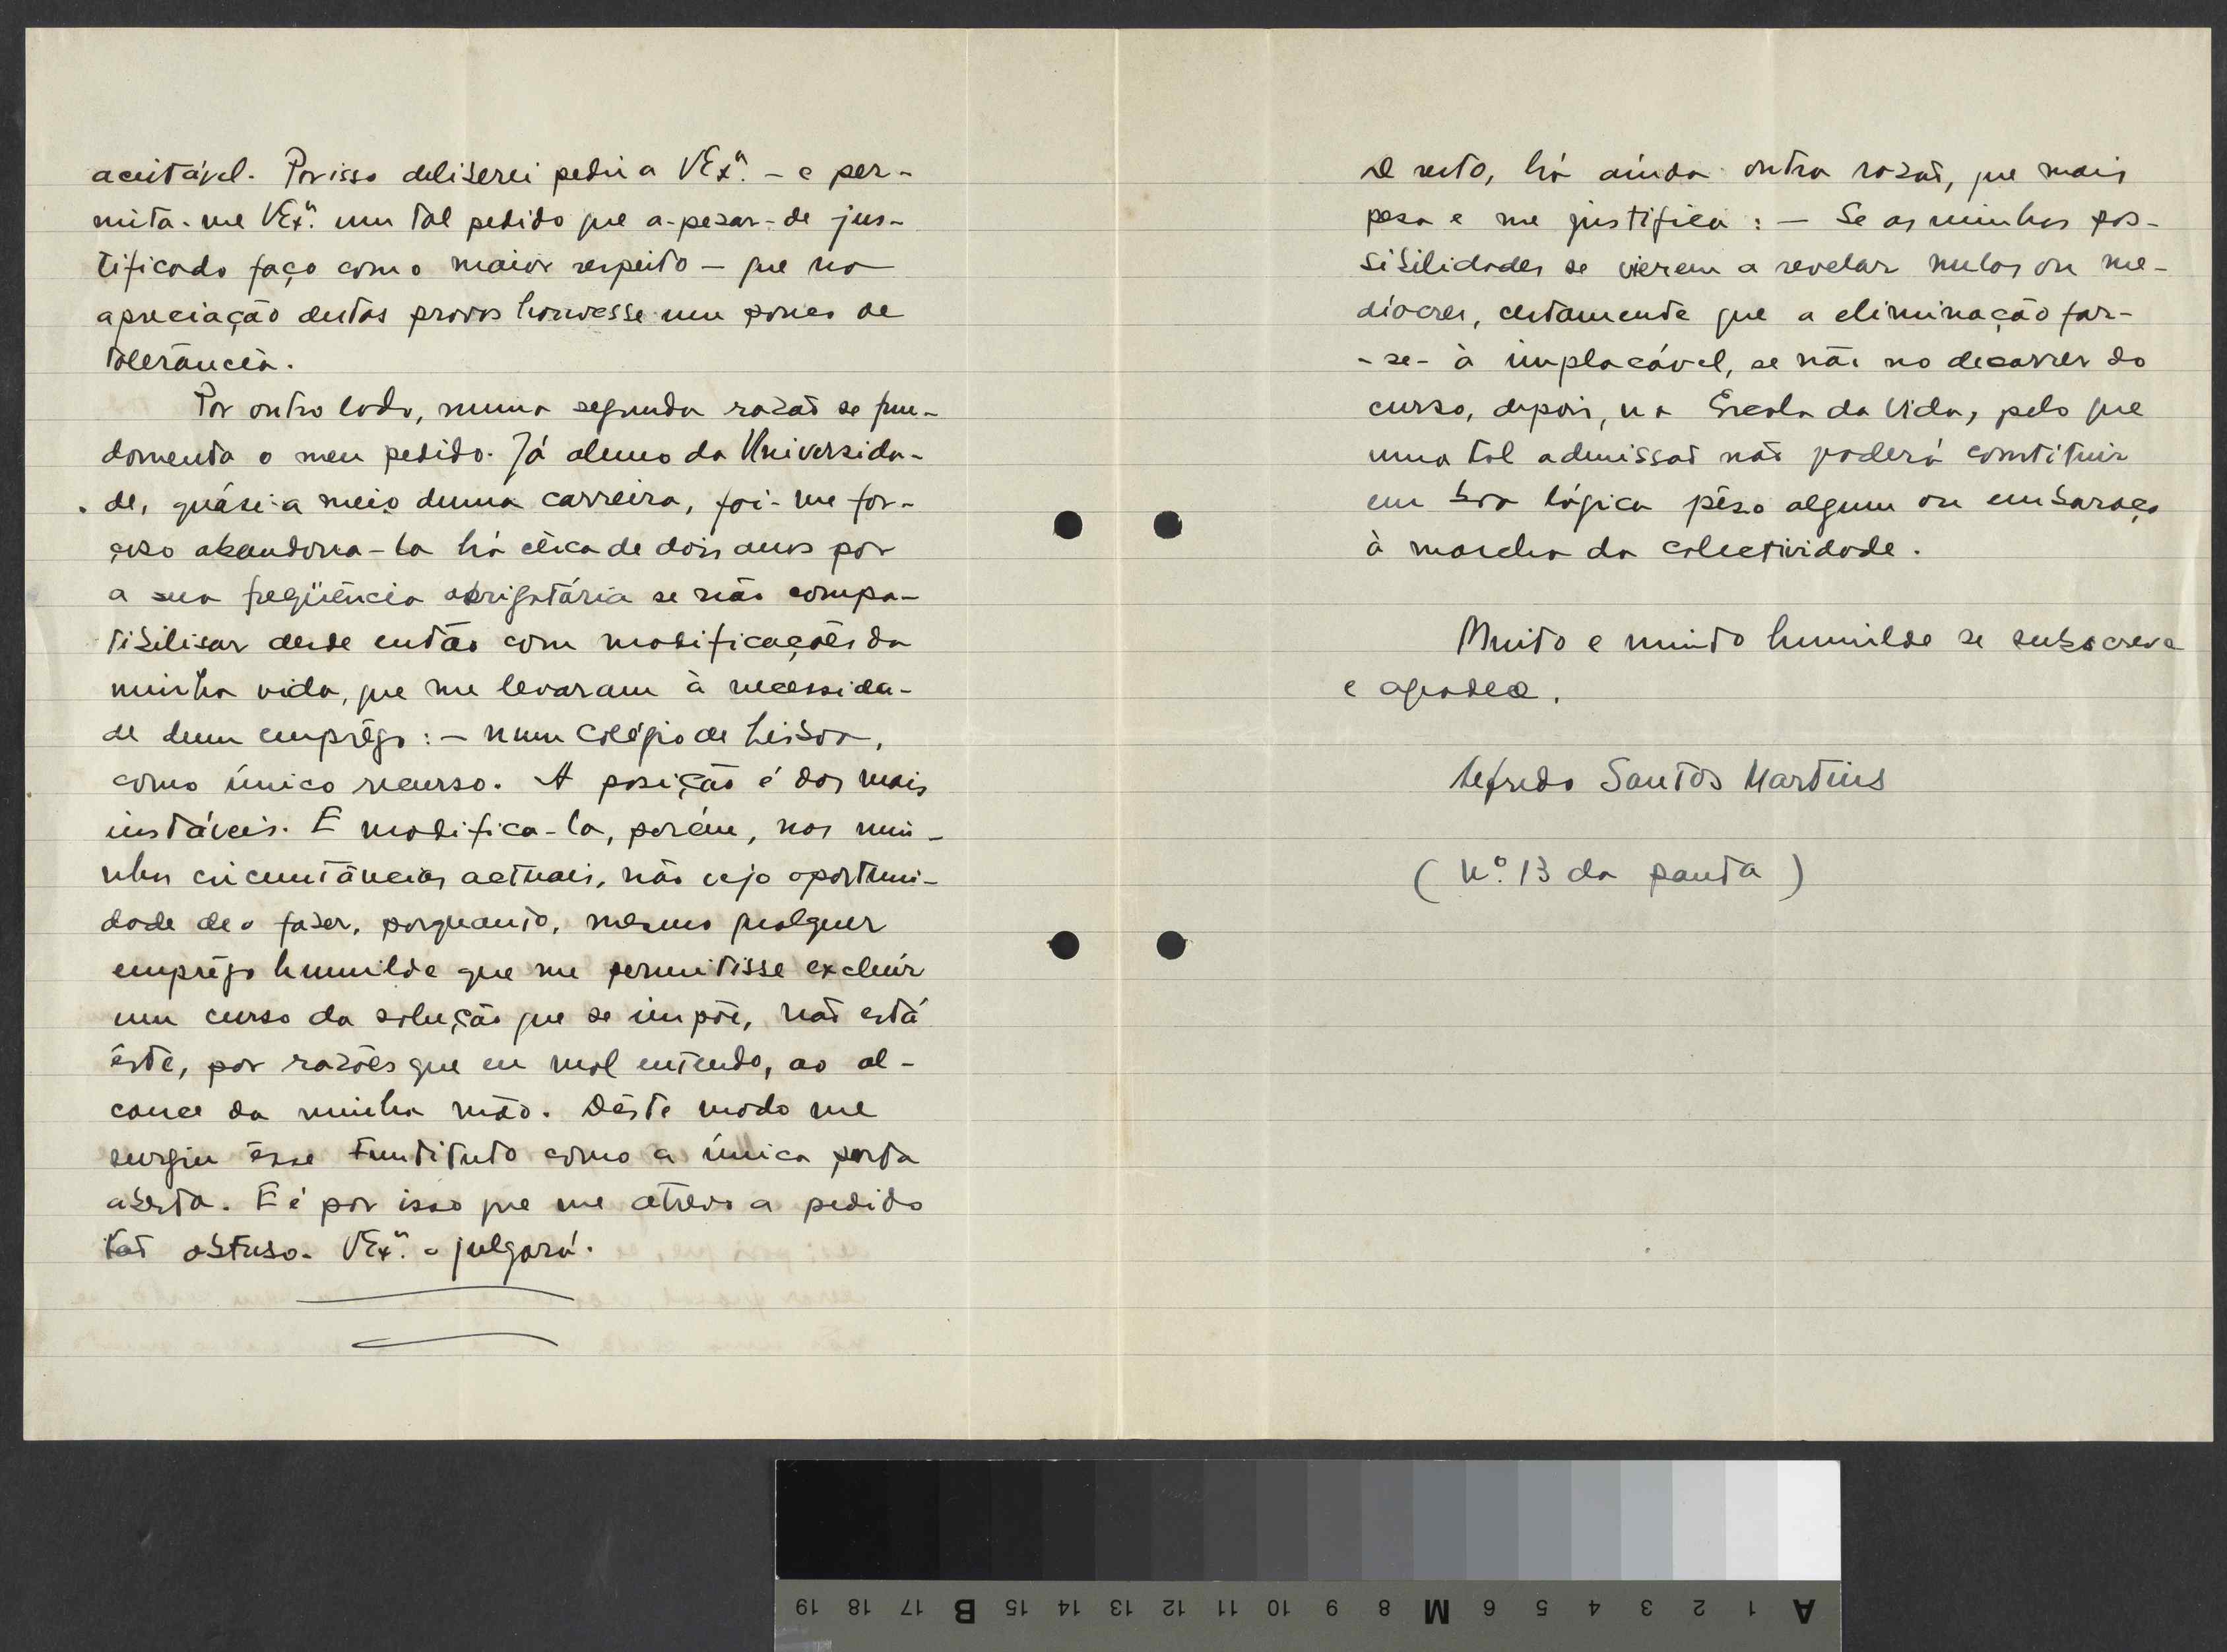 aceitável. Porisso deliberei pedir a VExª. - e per-
mita-me VExª. um tal pedido que a-pezar-de jus-
tificado faço com o maior respeito - que na
apreciação destas provas houvesse um pouco de
tolerância.
Por outro lado, numa segunda razão se fun-
damenta o meu pedido. Já aluno da Universida-
de, quási-a meio duma carreira, foi-me for-
çoso abandona-la há cêrca de dois anos por
a sua freqüência obrigatária se não compa-
tibilisar desde então com modificações da
minha vida, que me levaram à necessida-
de dum emprêgo: - num Colégio de Lisboa,
como único recurso. A posição é das mais
instáveis. E modifica-la, porém, nas mi-
nhas circunstâncias actuais, não vejo oportuni-
dade de o fazer, porquanto, mesmo qualquer
emprêgo humilde que me permitisse excluír
um curso da solução que se impõe, não está
êste, por razões que eu mal entendo, ao al-
cance da minha mão. Dêste modo me
surgiu êsse Instituto como a única porta
aberta. E é por isso que me atrevo a pedido
tão obtuso. VExª. o julgará.
De resto, há aínda outra razão, que mais
pesa e me justifica: - Se as minhas pos-
sibilidades se vierem a revelar nulas ou me-
díocres, certamente que a eliminação far-
-se-à implacável, se não no decorrer do
curso, depois, na Escola da Vida, pelo que
uma tal admissão não poderá constituir
em boa lógica pêso algum ou embaraço
à marcha da colectividade.
Muito e muito humilde se subscreve
e agradece.
Alfredo Santos Martins
(Nº. 13 da pauta)
19 18 17 B 15 14 13 12 11 10 9 8 M 6 5 4 3 2 1 A